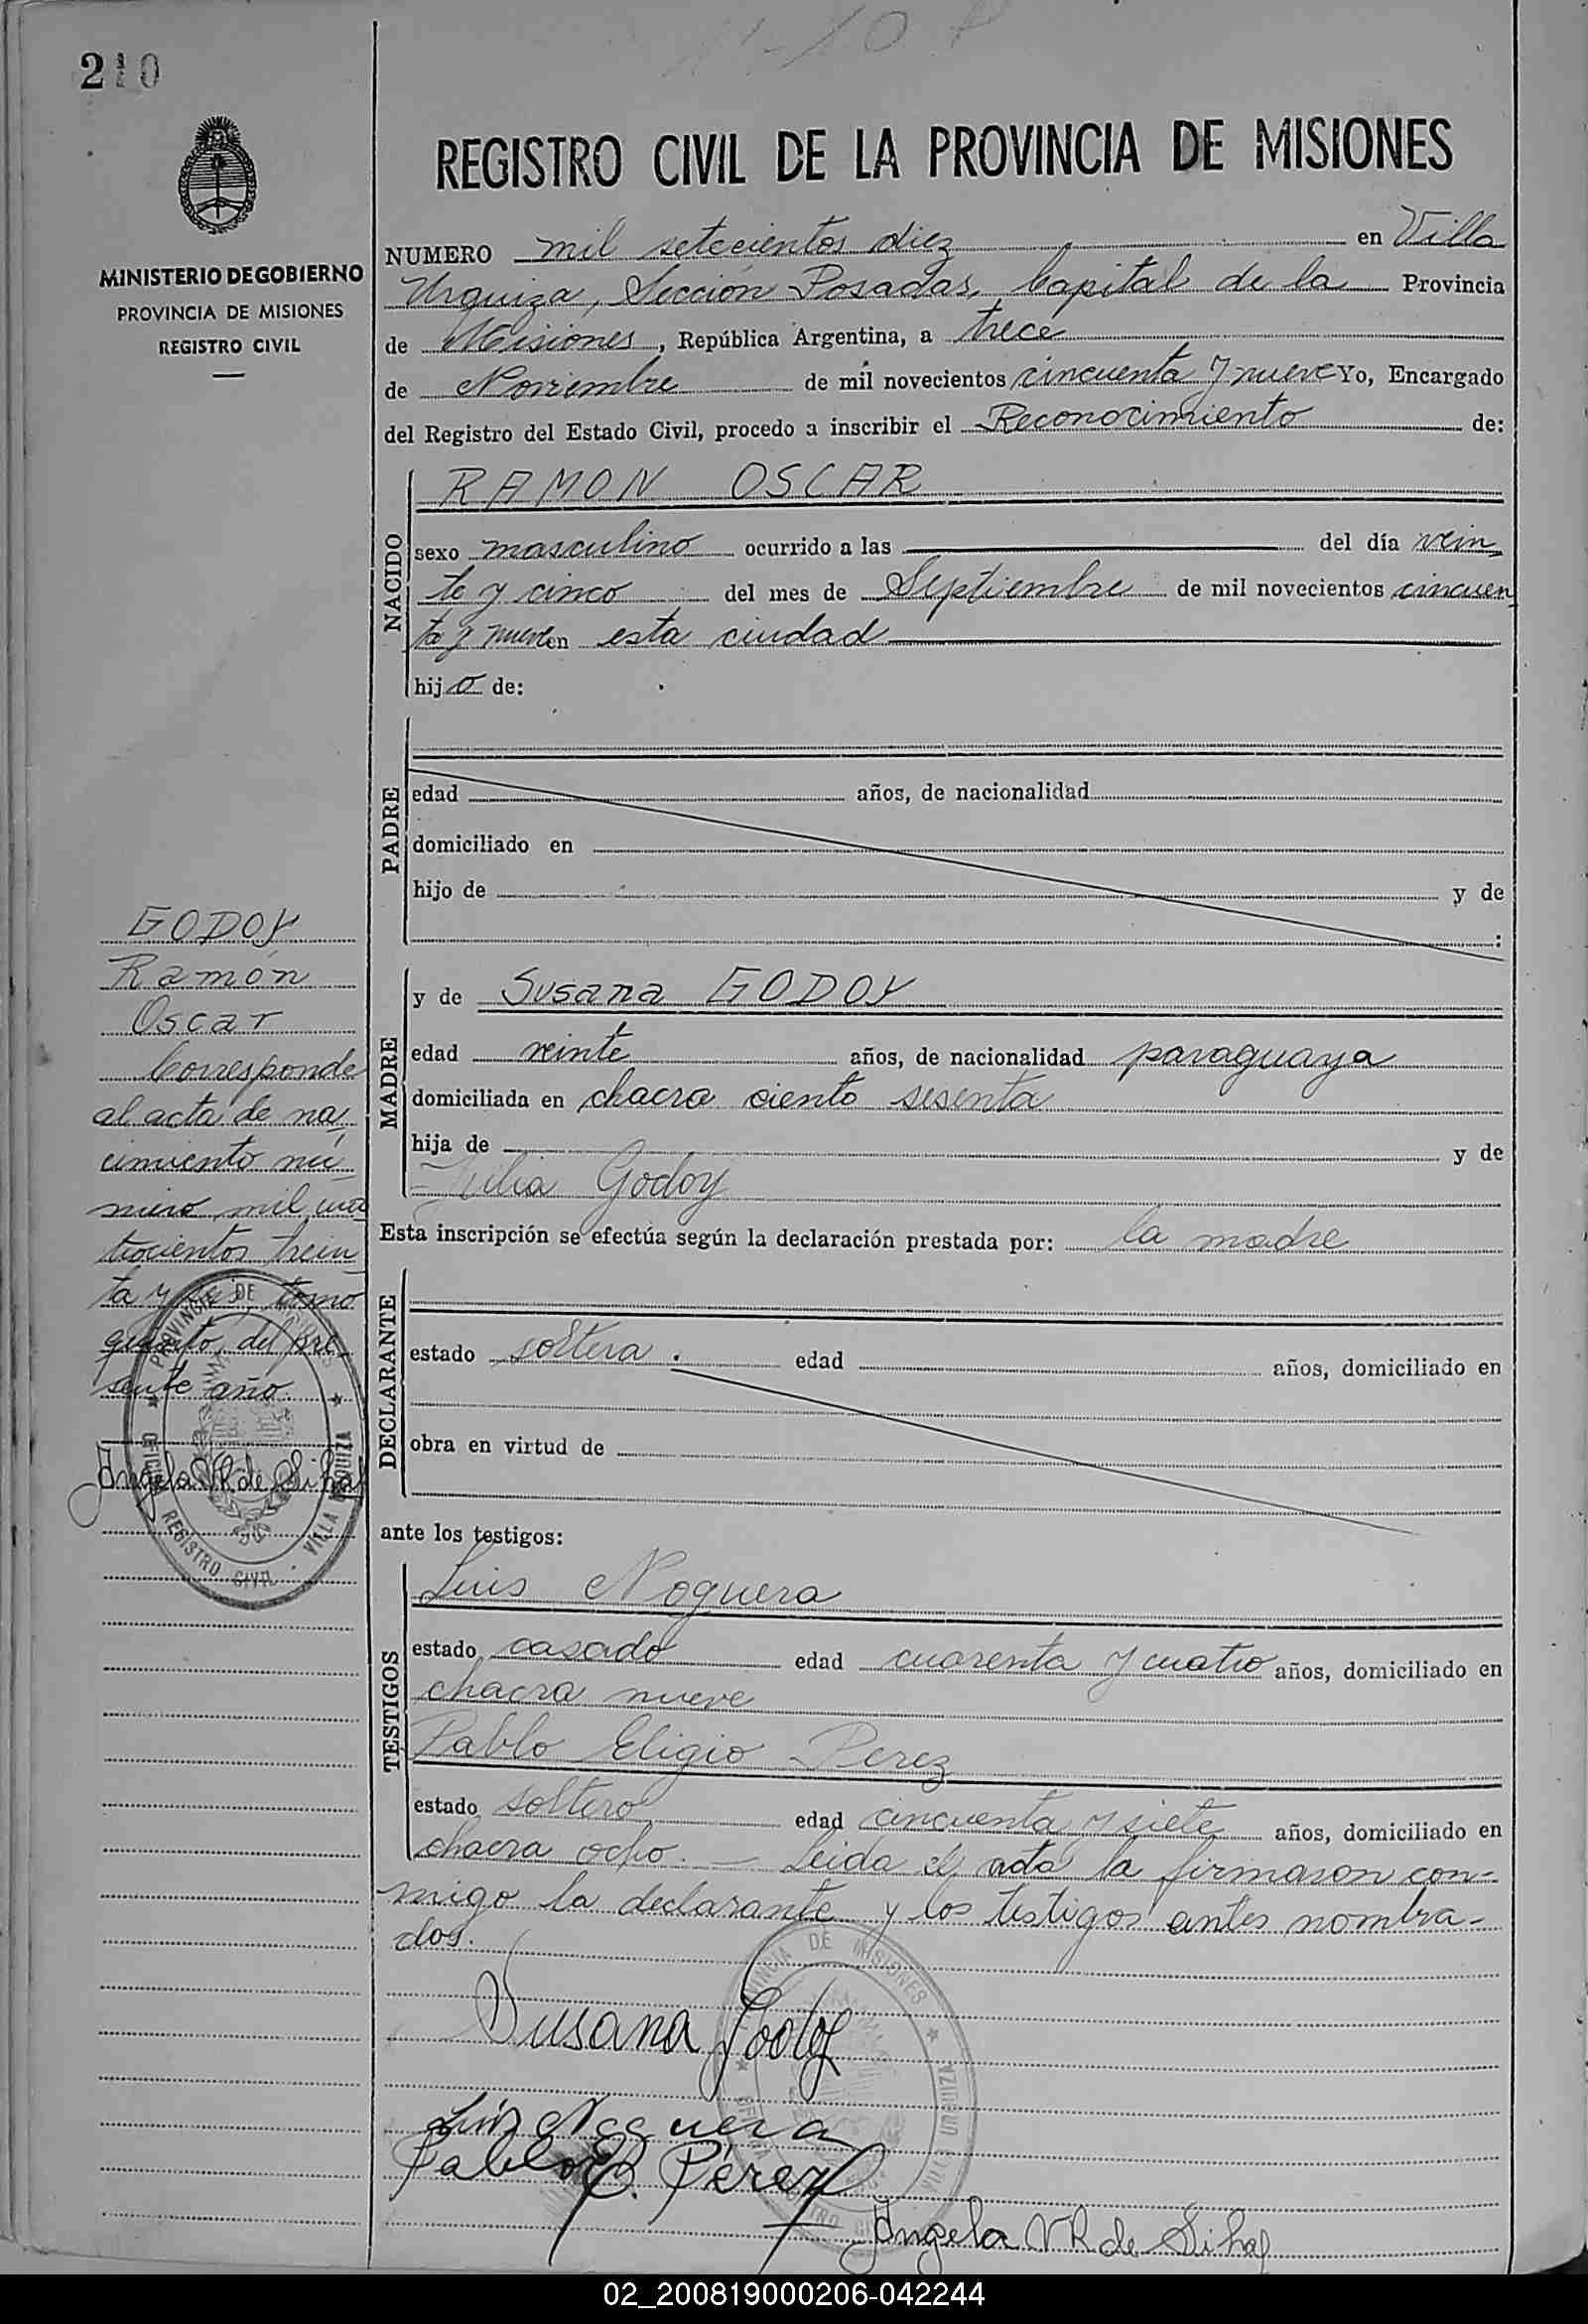 210
MINISTERIO DE GOBIERNO
PROVINCIA DE MISIONES
REGISTRO CIVIL
REGISTRO CIVIL DE LA PROVINCIA DE MISIONES
NUMERO mil setecientos diez en Villa
Urquiza, Sección Posadas, Capital de la Provincia
de Misiones, República Argentina, a trece
de Noviembre de mil novecientos cincuenta y nueve Yo, Encargado
del Registro del Estado Civil, procedo a inscribir el Reconocimiento de:
NACIDO
RAMON OSCAR
sexo masculino ocurrido a las del día vein
te y cinco del mes de Septiembre de mil novecientos cincuen
ta y nueve en esta ciudad
hijo de:
PADRE
edad años, de nacionalidad
domiciliado en
hijo de y de
:
MADRE
y de Susana GODOY
edad veinte años, de nacionalidad paraguaya
domiciliada en chacra ciento sesenta
hija de y de
Julia Godoy
Esta inscripción se efectúa según la declaración prestada por: la madre
DECLARANTE
estado soltera. edad años, domiciliado en
obra en virtud de
ante los testigos:
TESTIGOS
Luis Noguera
estado casado edad cuarenta y cuatro años, domiciliado en
chacra nueve
Pablo Eligio Perez
estado soltero edad cincuenta y siete años, domiciliado en
chacra ocho. — Leida el acta la firmaron con-
migo la declarante y los testigos antes nombra-
dos.
Susana Godoy
Luis Noguera
Pablo E. Pérez
Angela VR de Sihaj
GODOY
Ramón
Oscar
Corresponde
al acta de na
cimiento nú
mero mil cua
trocientos trein
ta y tomo
quinto, del pre
sente año.
Angela VR de Sihaj
PROVINCIA DE MISIONES
OFICINA REGISTRO CIVIL - VILLA URQUIZA
PROVINCIA DE MISIONES
VILLA URQUIZA
02_200819000206-042244